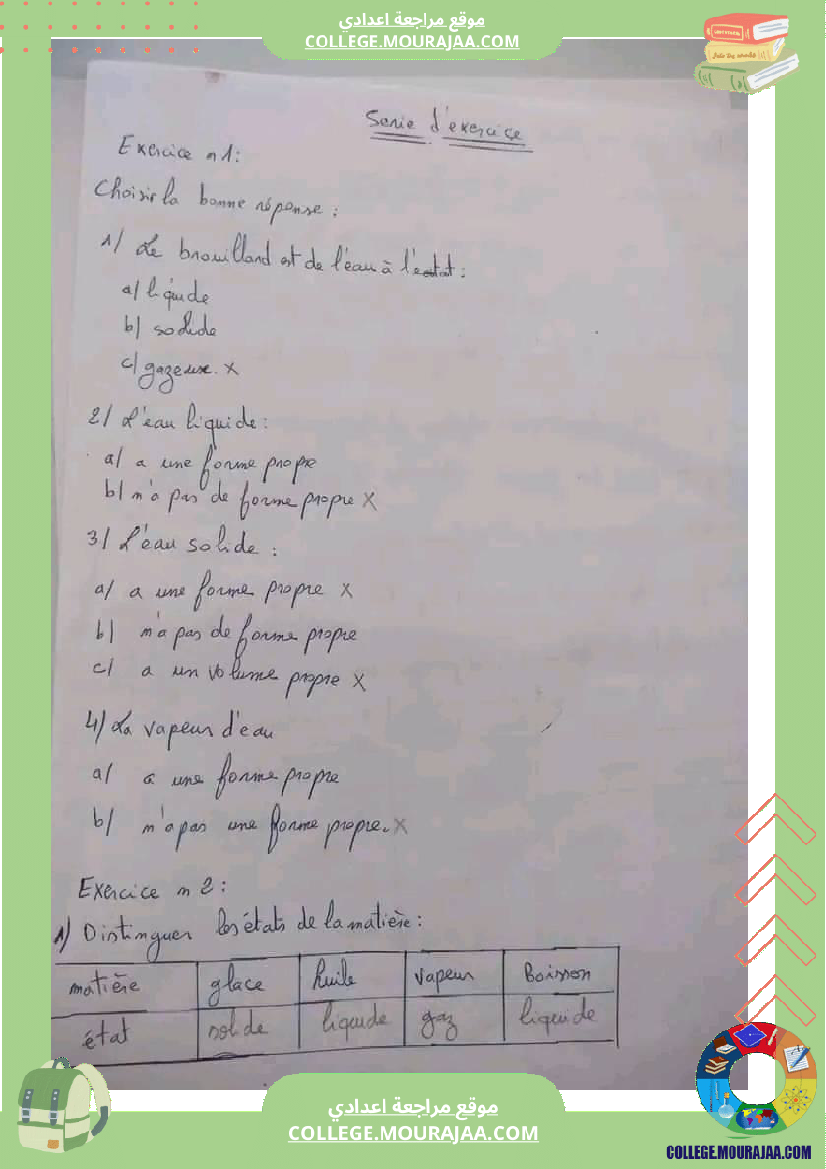 موقع مراجعة اعدادي
COLLEGE.MOURAJAA.COM
Serie d'exercice
Exercice n 1:
Choisir la bonne réponse :
1/ Le brouillard est de l'eau à l'état :
a/ liquide
b/ solide
c/ gazeuse. x
2/ L'eau liquide :
a/ a une forme propre
b/ n'a pas de forme propre x
3/ L'eau solide :
a/ a une forme propre x
b/ n'a pas de forme propre
c/ a un volume propre x
4/ La vapeur d'eau
a/ a une forme propre
b/ n'a pas une forme propre. x
Exercice n 2 :
1/ Distinguer les états de la matière :
matière glace huile vapeur Boisson
état solide liquide gaz liquide
موقع مراجعة اعدادي
COLLEGE.MOURAJAA.COM
COLLEGE.MOURAJAA.COM